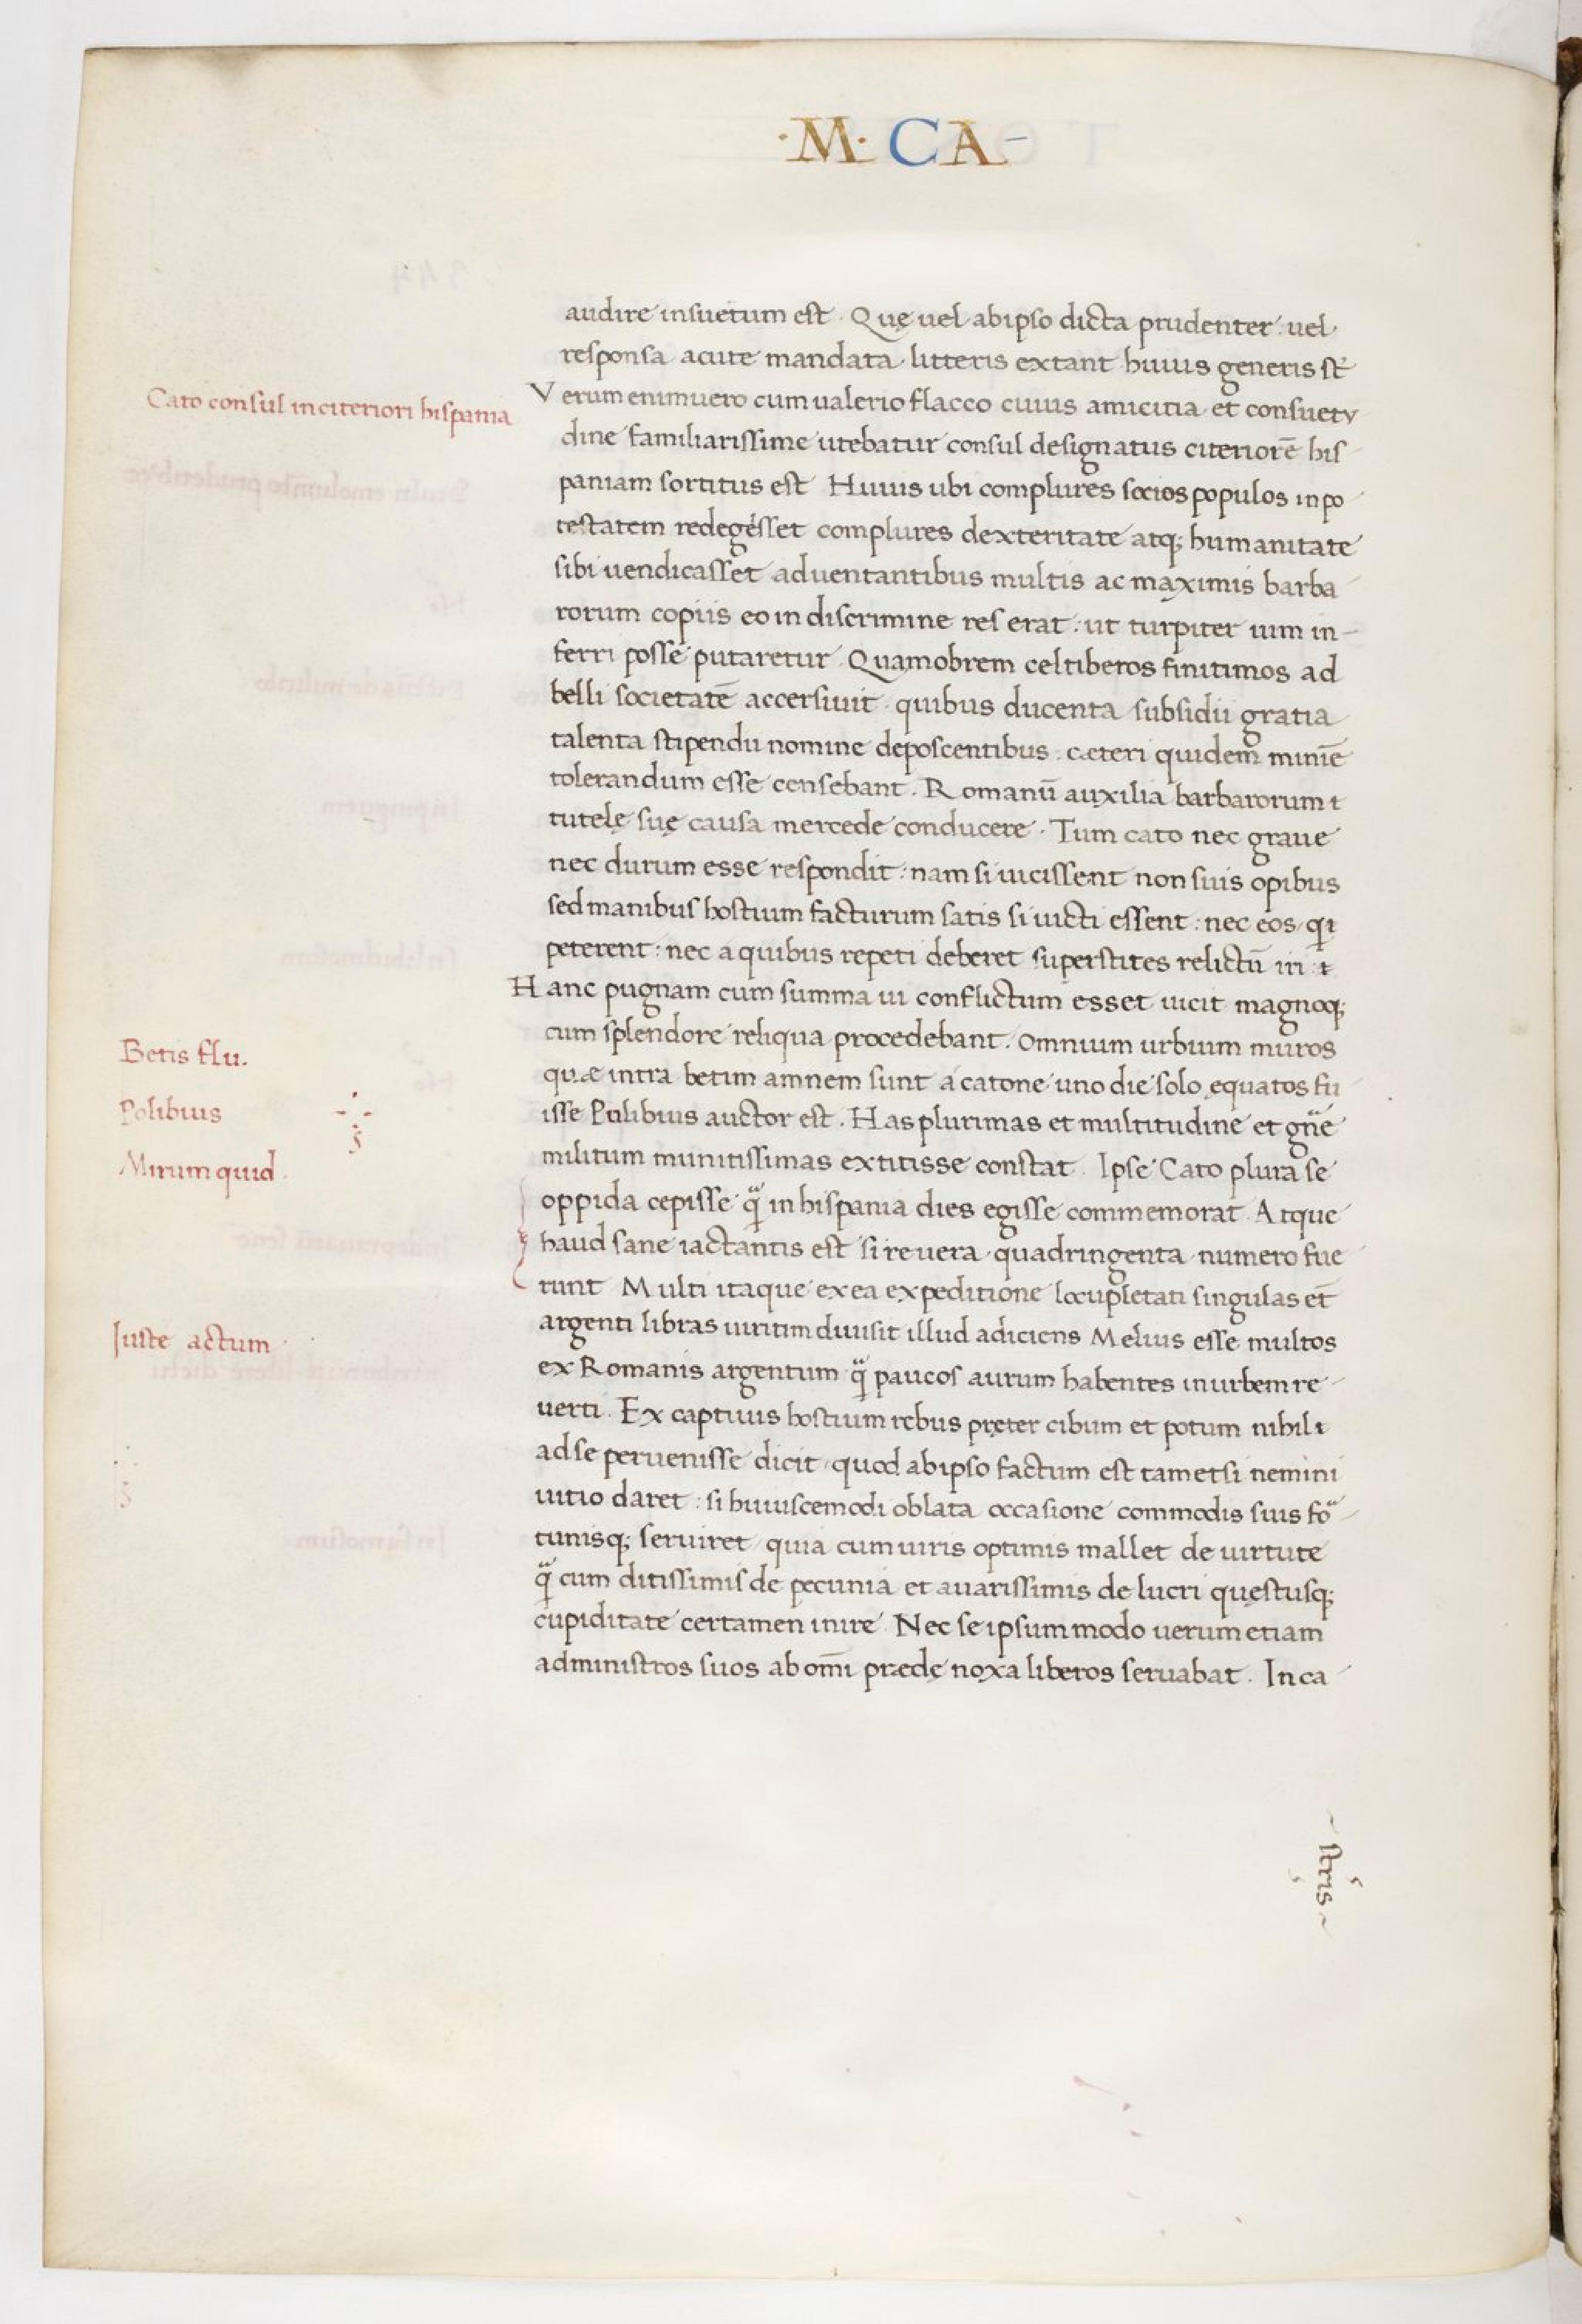 ·M· CA-
audire insuetum est. Quę uel ab ipso dicta prudenter: uel
responsa acute mandata litteris extant huius generis st̄
Cato consul in citeriori hispania
Verum enimuero cum ualerio flacco cuius amicitia et consuetu
dine familiarissime utebatur consul designatus citeriorē his
paniam sortitus est Huius ubi complures socios populos in po
testatem redegisset complures dexteritate atq; humanitate
sibi uendicasset aduentantibus multis ac maximis barba
rorum copiis eo in discrimine res erat: ut turpiter uim in-
ferri posse putaretur. Quamobrem celtiberos finitimos ad
belli societatē accersiuit quibus ducenta subsidii gratia
talenta stipendii nomine deposcentibus. cæteri quidem minīe
tolerandum esse censebant. Romanū auxilia barbarorum
tutelę suę causa mercede conducere. Tum cato nec graue
nec durum esse respondit: nam si uicissent non suis opibus
sed manibus hostium facturum satis si uicti essent: nec eos, qi
peterent: nec a quibus repeti deberet superstites relictū iri:
Hanc pugnam cum summa ui conflictum esset uicit magnoq;
cum splendore reliqua procedebant. Omnium urbium muros
Betis flu.
quæ intra betim amnem sunt a catone uno die solo ęquatos fu
Polibius
isse Polibius auctor est. Has plurimas et multitudine et gn̈e
Mirum quid.
militum munitissimas extitisse constat. Ipse Cato plura se
oppida cepisse q̈ in hispania dies egisse commemorat. Atque
haud sane iactantis est si reuera quadringenta numero fue
runt Multi itaque ex ea expeditione locupletati singulas et̄
argenti libras uiritim diuisit illud adiciens Melius esse multos
Iuste actum
ex Romanis argentum q̈ paucos aurum habentes in urbem re-
uerti. Ex captiuis hostium rebus pręter cibum et potum nihil
ad se peruenisse dicit, quod ab ipso factum est tametsi nemini
uitio daret: si huiuscemodi oblata occasione commodis suis fö
tunisq; seruiret, quia cum uiris optimis mallet de uirtute
q̈ cum ditissimis de pecunia et auarissimis de lucri quęstusq;
cupiditate certamen inire. Nec se ipsum modo uerum etiam
administros suos ab om̄i prædę noxa liberos seruabat. In ca
~ stris ~